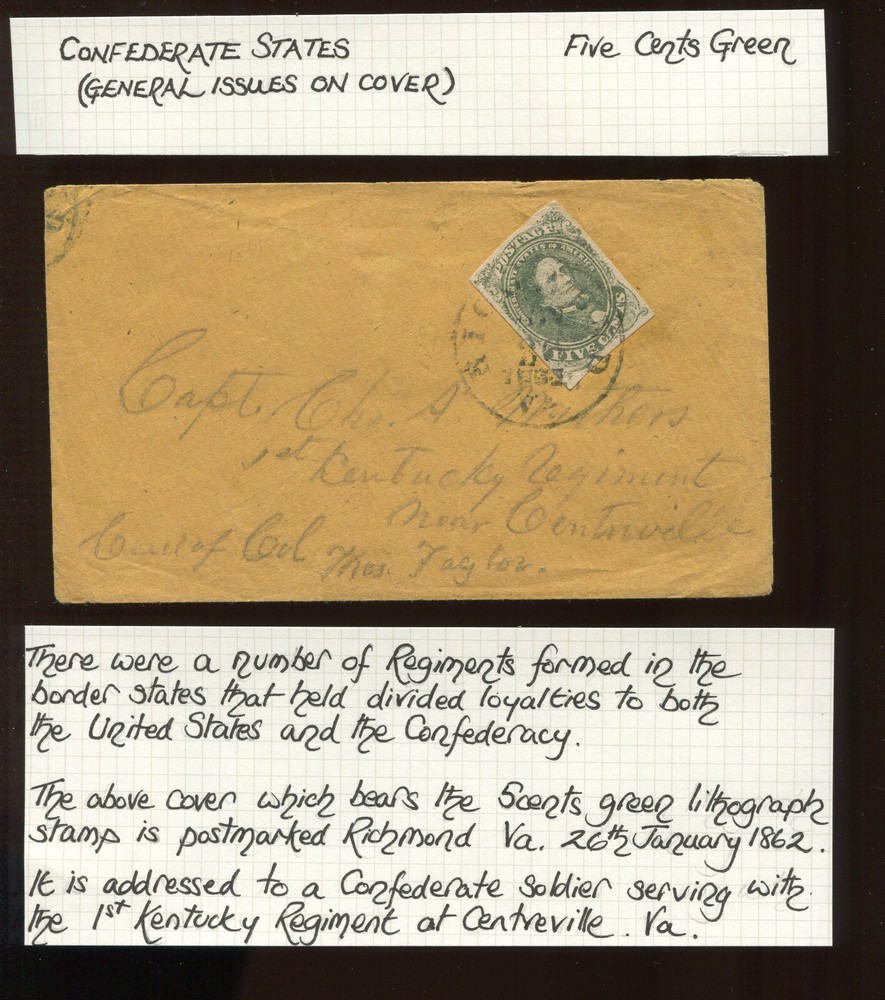 CONFEDERATE STATES Five Cents Green
(GENERAL ISSUES ON COVER)
POSTAGE
CONFEDERATE STATES OF AMERICA
FIVE CENTS
Capt. Chs. A.
1st Kentucky Regiment
Near Centreville
Care of Col Thos. Taylor.
There were a number of Regiments formed in the
border states that held divided loyalties to both
the United States and the Confederacy.
The above cover which bears the 5cents green lithograph
stamp is postmarked Richmond Va. 26th January 1862.
It is addressed to a Confederate soldier serving with
the 1st Kentucky Regiment at Centreville. Va.